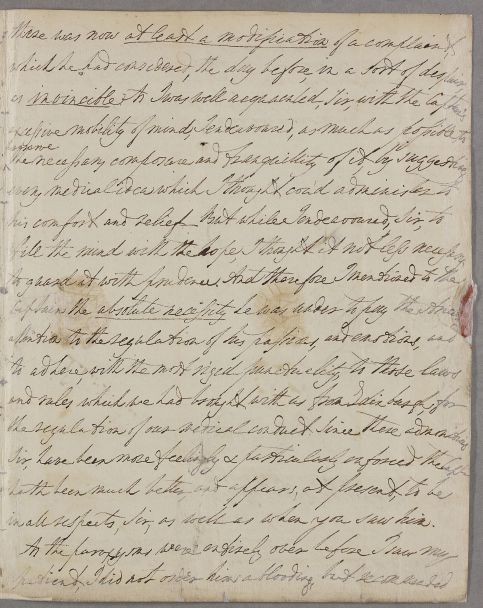 there was now at least a modification of a complaint
which he had considered, the day before in a sort of despair
as invincible; to I was well acquainted, Sir, with the Captain's
excessive mobility of mind, I endeavoured, as much as possible to
preserve
the necessary composure and tranquillity of it by suggesting
every medical idea which I thought could administer to
his comfort and relief. But while I endeavoured, Sir, to
fill the mind with the hope, I thought it not less necessary
to guard it with prudence. And therefore I mentioned to the
Captain the absolute necessity he was under to pay the strictest
attention to the regulation of his passions, and emotions, and
to adhere with the most rigid punctuality to those laws
and rules which we had brought with us from Edinburgh, for
the regulation of our medical conduct. Since these admonitions
Sir, have been more feelingly & particularly enforced the Captn
hath been much better and appears, at present, to be
in all respects, Sir, as well as when you saw him.
As the paroxysms were entirely over before I saw my
patient, I did not order him a blooding, but recommended